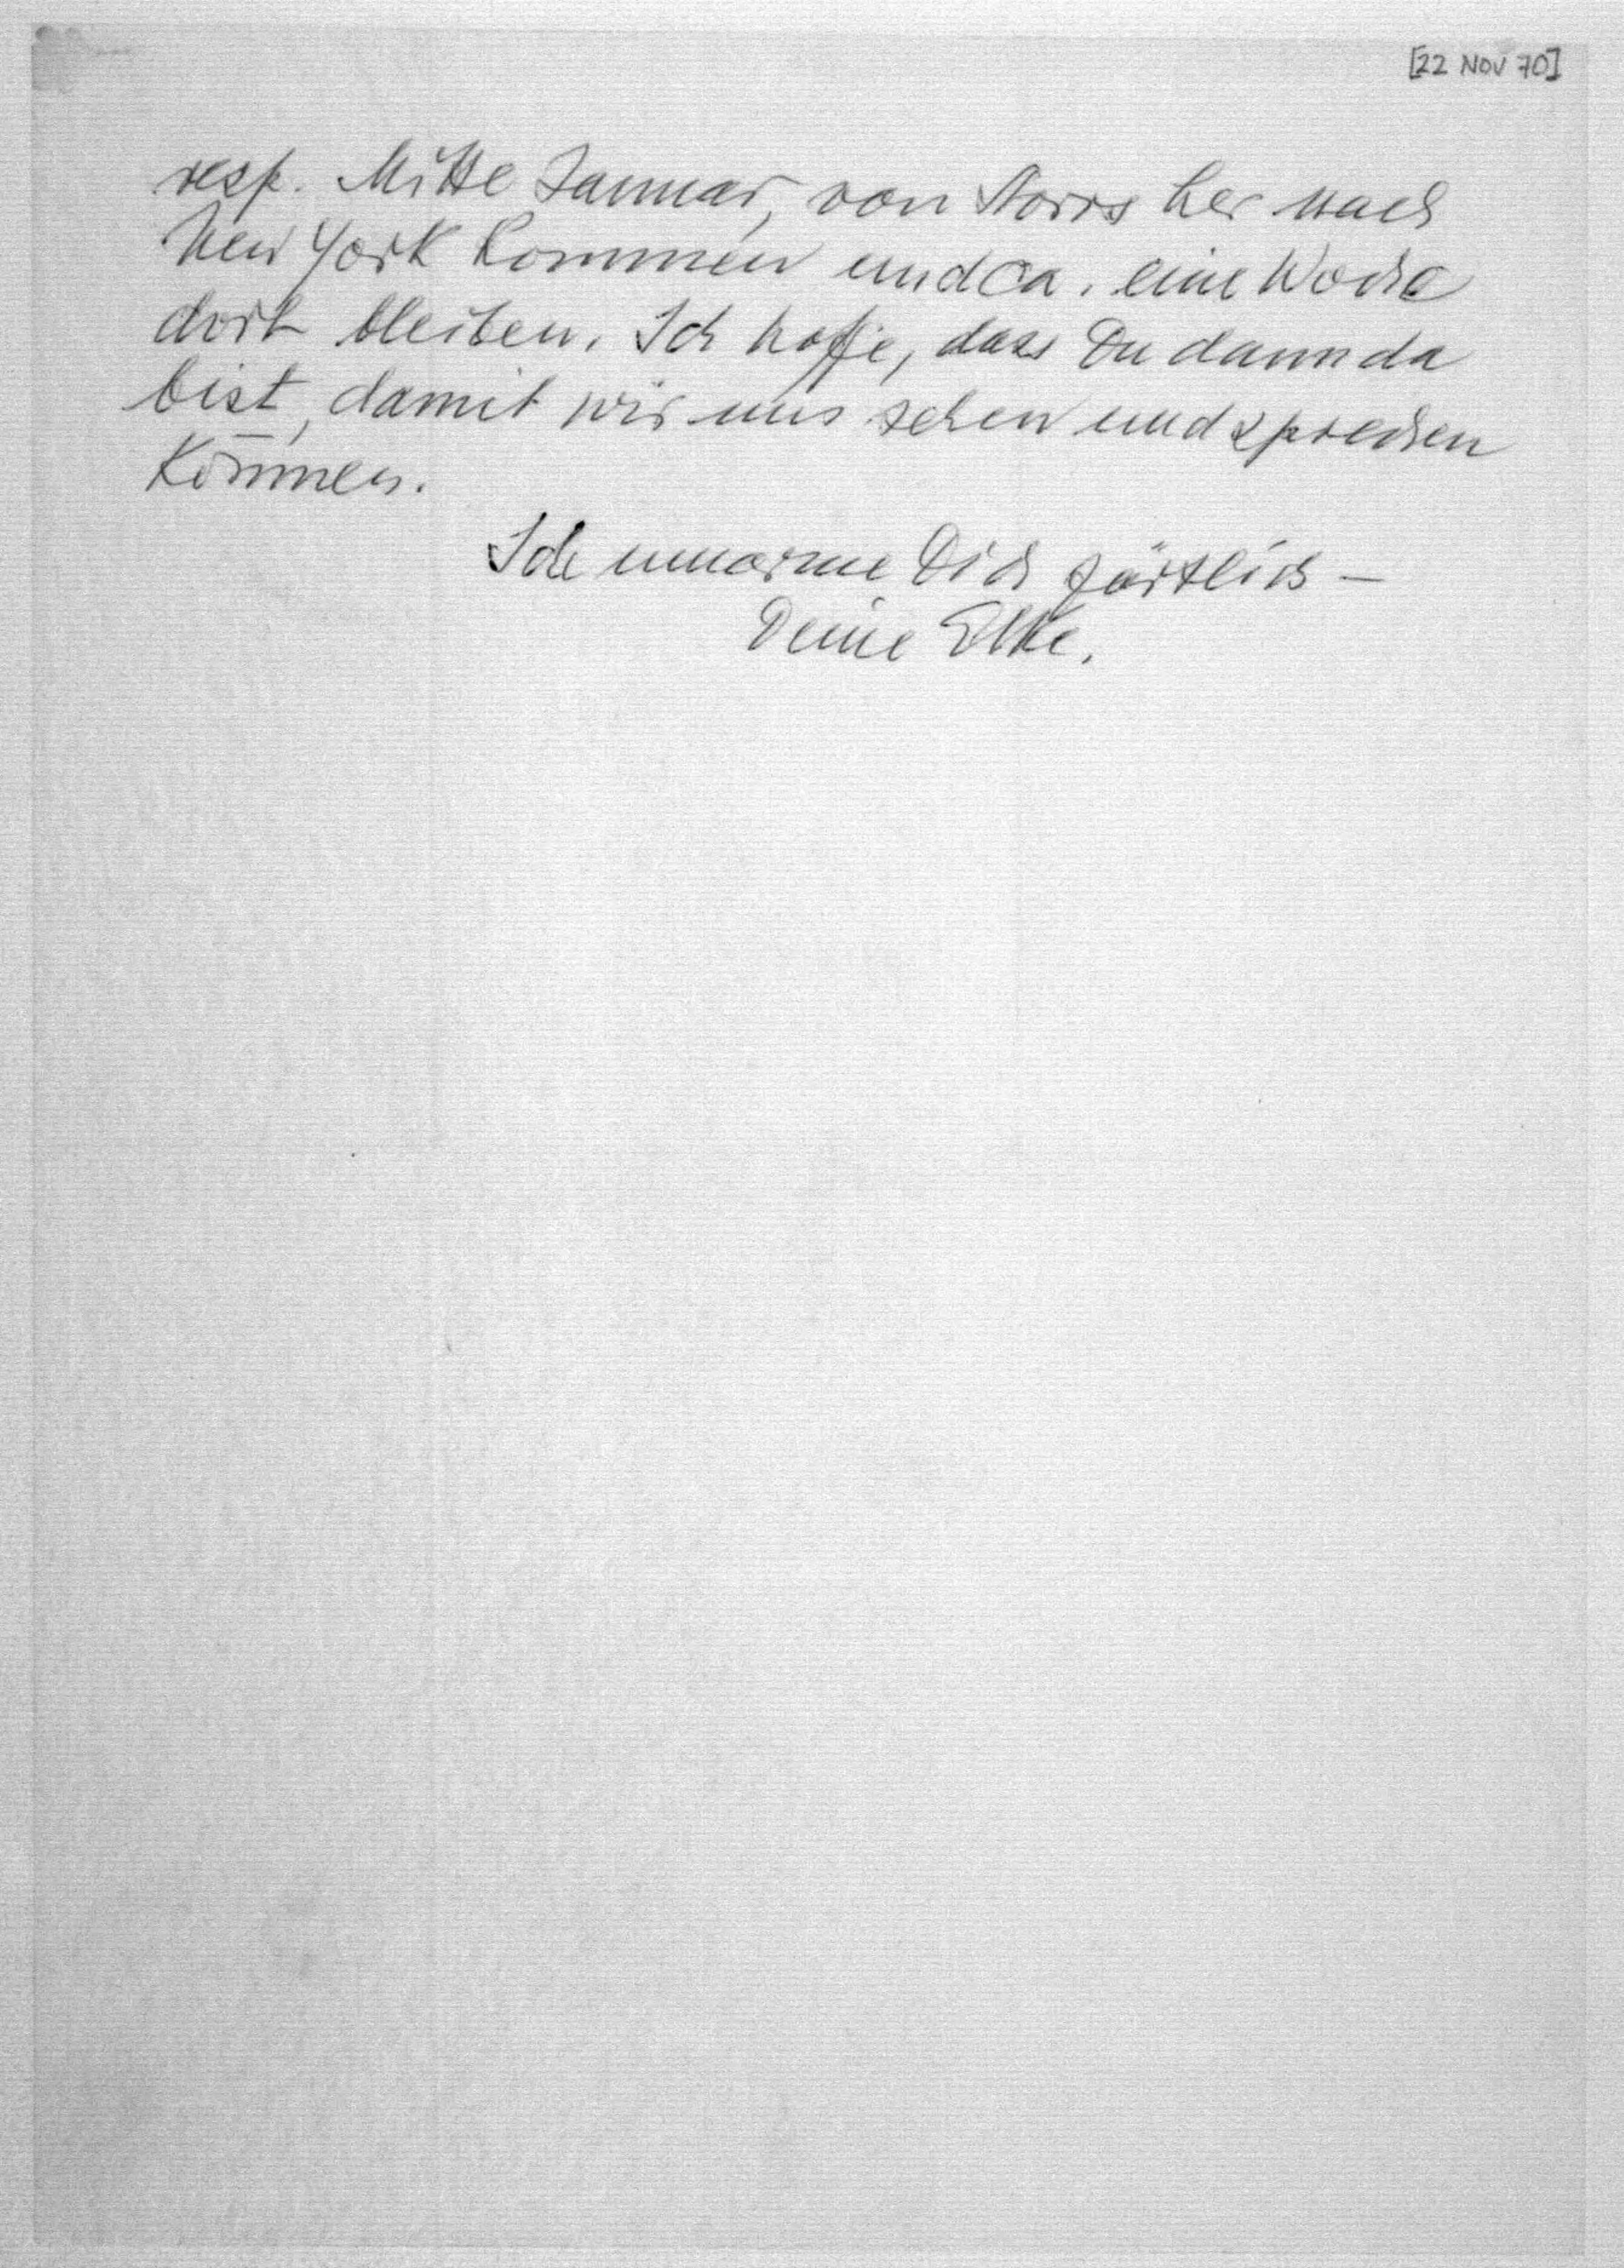 [22 NOV 70]
resp. Mitte Januar, von Storrs her nach
New York kommen und ca. eine Woche
dort bleiben. Ich hoffe, dass Du dann da
bist, damit wir uns sehen und sprechen
können.
Ich umarme Dich zärtlich –
Deine Elke.